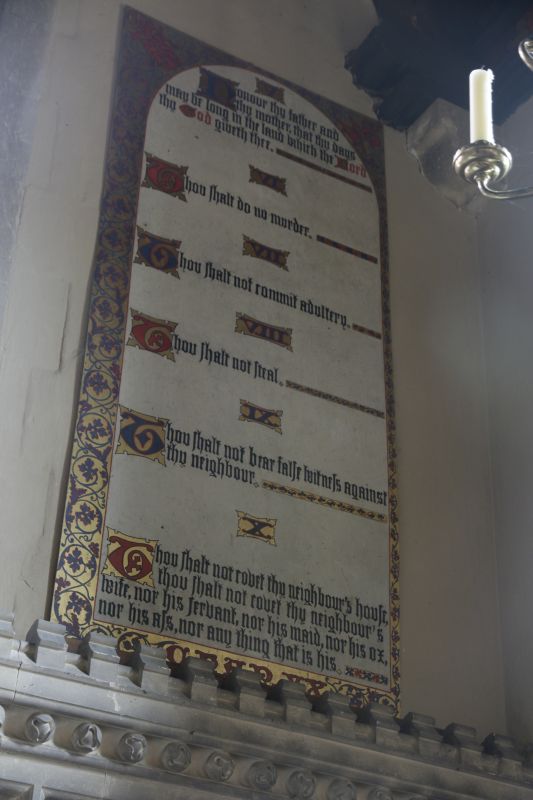 V
Honour thy father and
thy mother, that thy days
may be long in the land which the Lord
thy God giveth thee.
VI
Thou shalt do no murder.
VII
Thou shalt not commit adultery.
VIII
Thou shalt not steal.
IX
Thou shalt not bear false witness against
thy neighbour.
X
Thou shalt not covet thy neighbour's house,
thou shalt not covet thy neighbour's
wife, nor his servant, nor his maid, nor his ox,
nor his ass, nor any thing that is his.